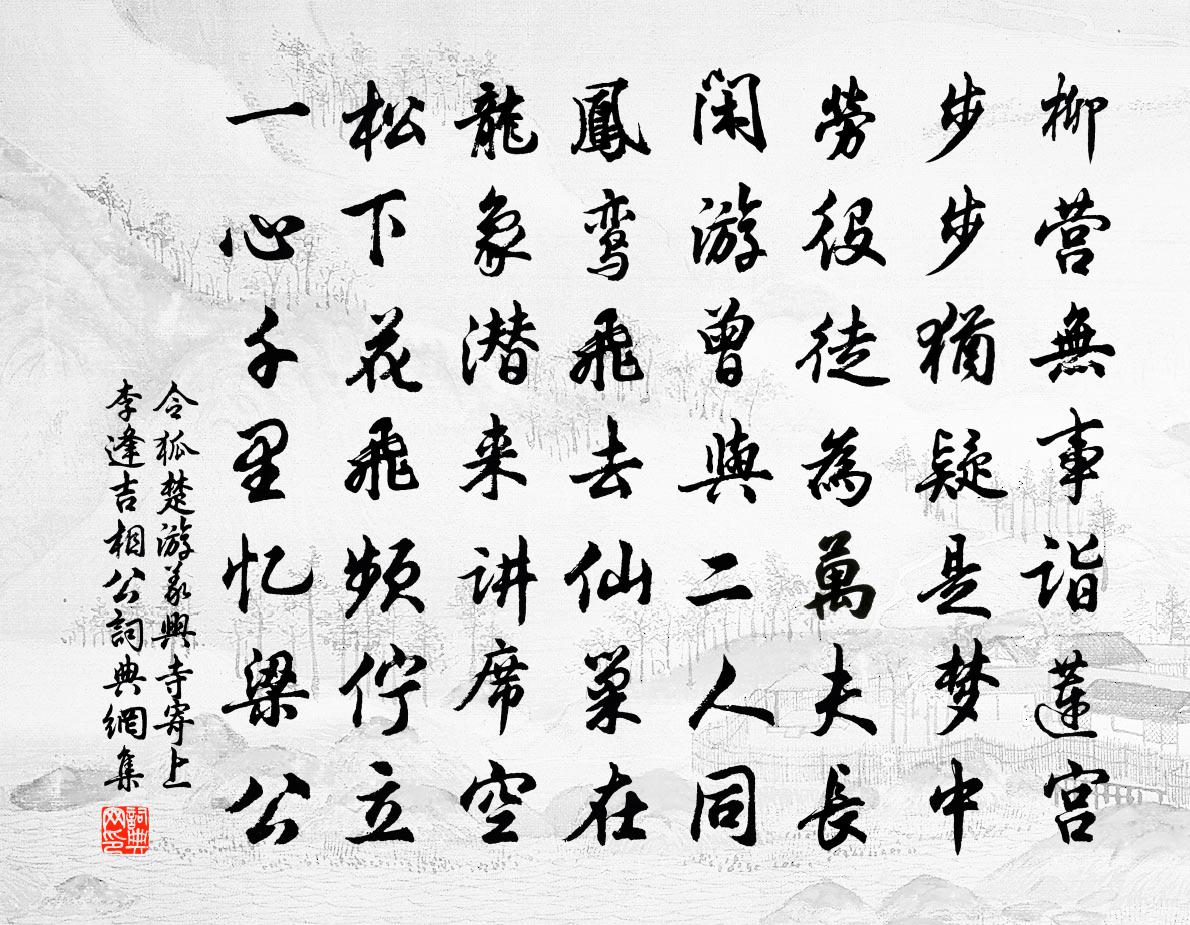 柳营無事诣莲宫
步步猶疑是梦中
勞役徒為萬夫長
闲游曾與二人同
鳳鸾飛去仙巢在
龍象潜来讲席空
松下花飛頻佇立
一心千里忆梁公
令狐楚游义興寺寄上
李逢吉相公詞典網集
詞典網印